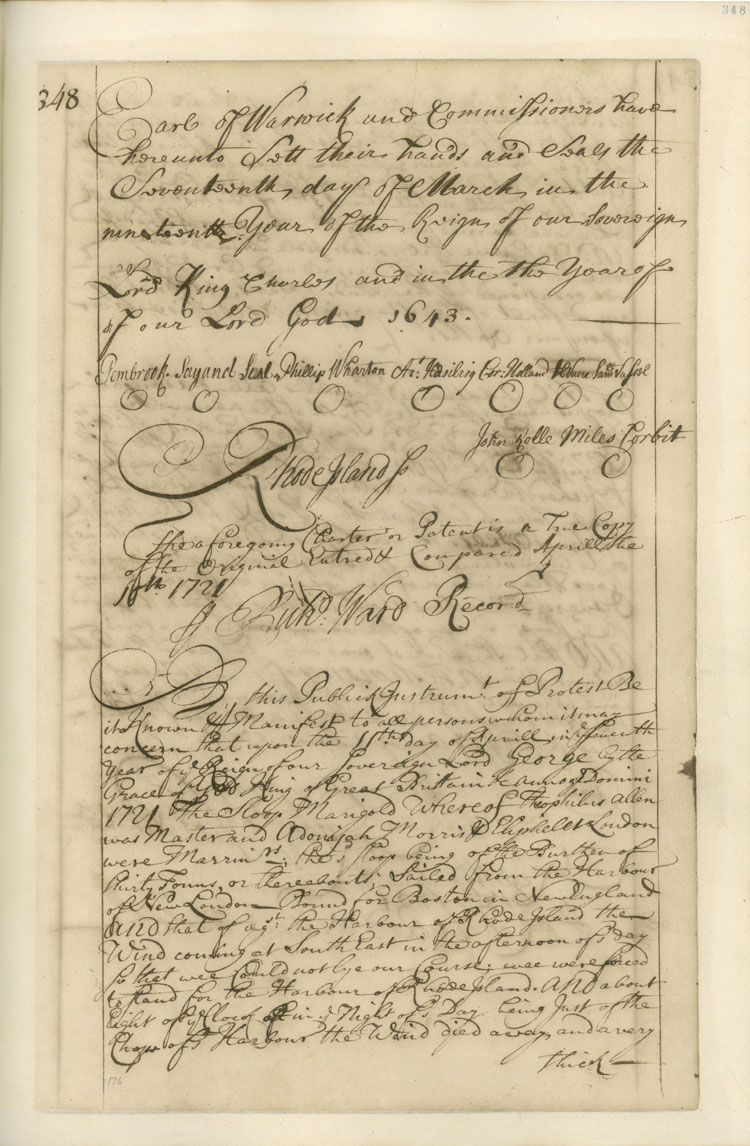 348
348
Earle of Warwick and Commissioners have
hereunto Sett their hands and Seals the
Seventeenth day of March in the
nineteenth Year of the Reign of our Sovereign
Lord King Charles and in the the Year of
of our Lord God 1643.
Pembrook. Say and Seal Phillip Wharton Ar: Hasilrig Cor: Holland HVane Sam Vassel
John Rolle Miles Corbit
Rhode Island ss
the aforegoing Charter or Patent is a True Copy
of the Original Entred & Compared Aprill the
1721
Richd. Ward Record
By this Publick Instrumt. of Protest Be
it Known & Manifest to all persons whom it may
concern that upon the day of Aprill in ye seventh
Year of ye Reign of our Sovereign Lord George by the
Grace of God King of Great Brittain & annoq Domini
1721 The Sloop Marigold Whereof Theophilus Allen
was Master and Adonijah Morris & Eliphelet London
were Marrinrs, the s Sloop being of the Burthen of
thirty Tonns, or thereabouts, Sailed from the Harbour
of New London Bound for Boston in New England
And that of agst. the Harbour of Rhode Island the
Wind coming at South East in the afternoon of sd day
so that wee could not lye our Course; wee were forced
to stand for the Harbour of Rhode Island. And about
Eight of ye Clock in ye Night of sd Day being Just of the
of sd Harbour the Wind died away and a very
thick
176